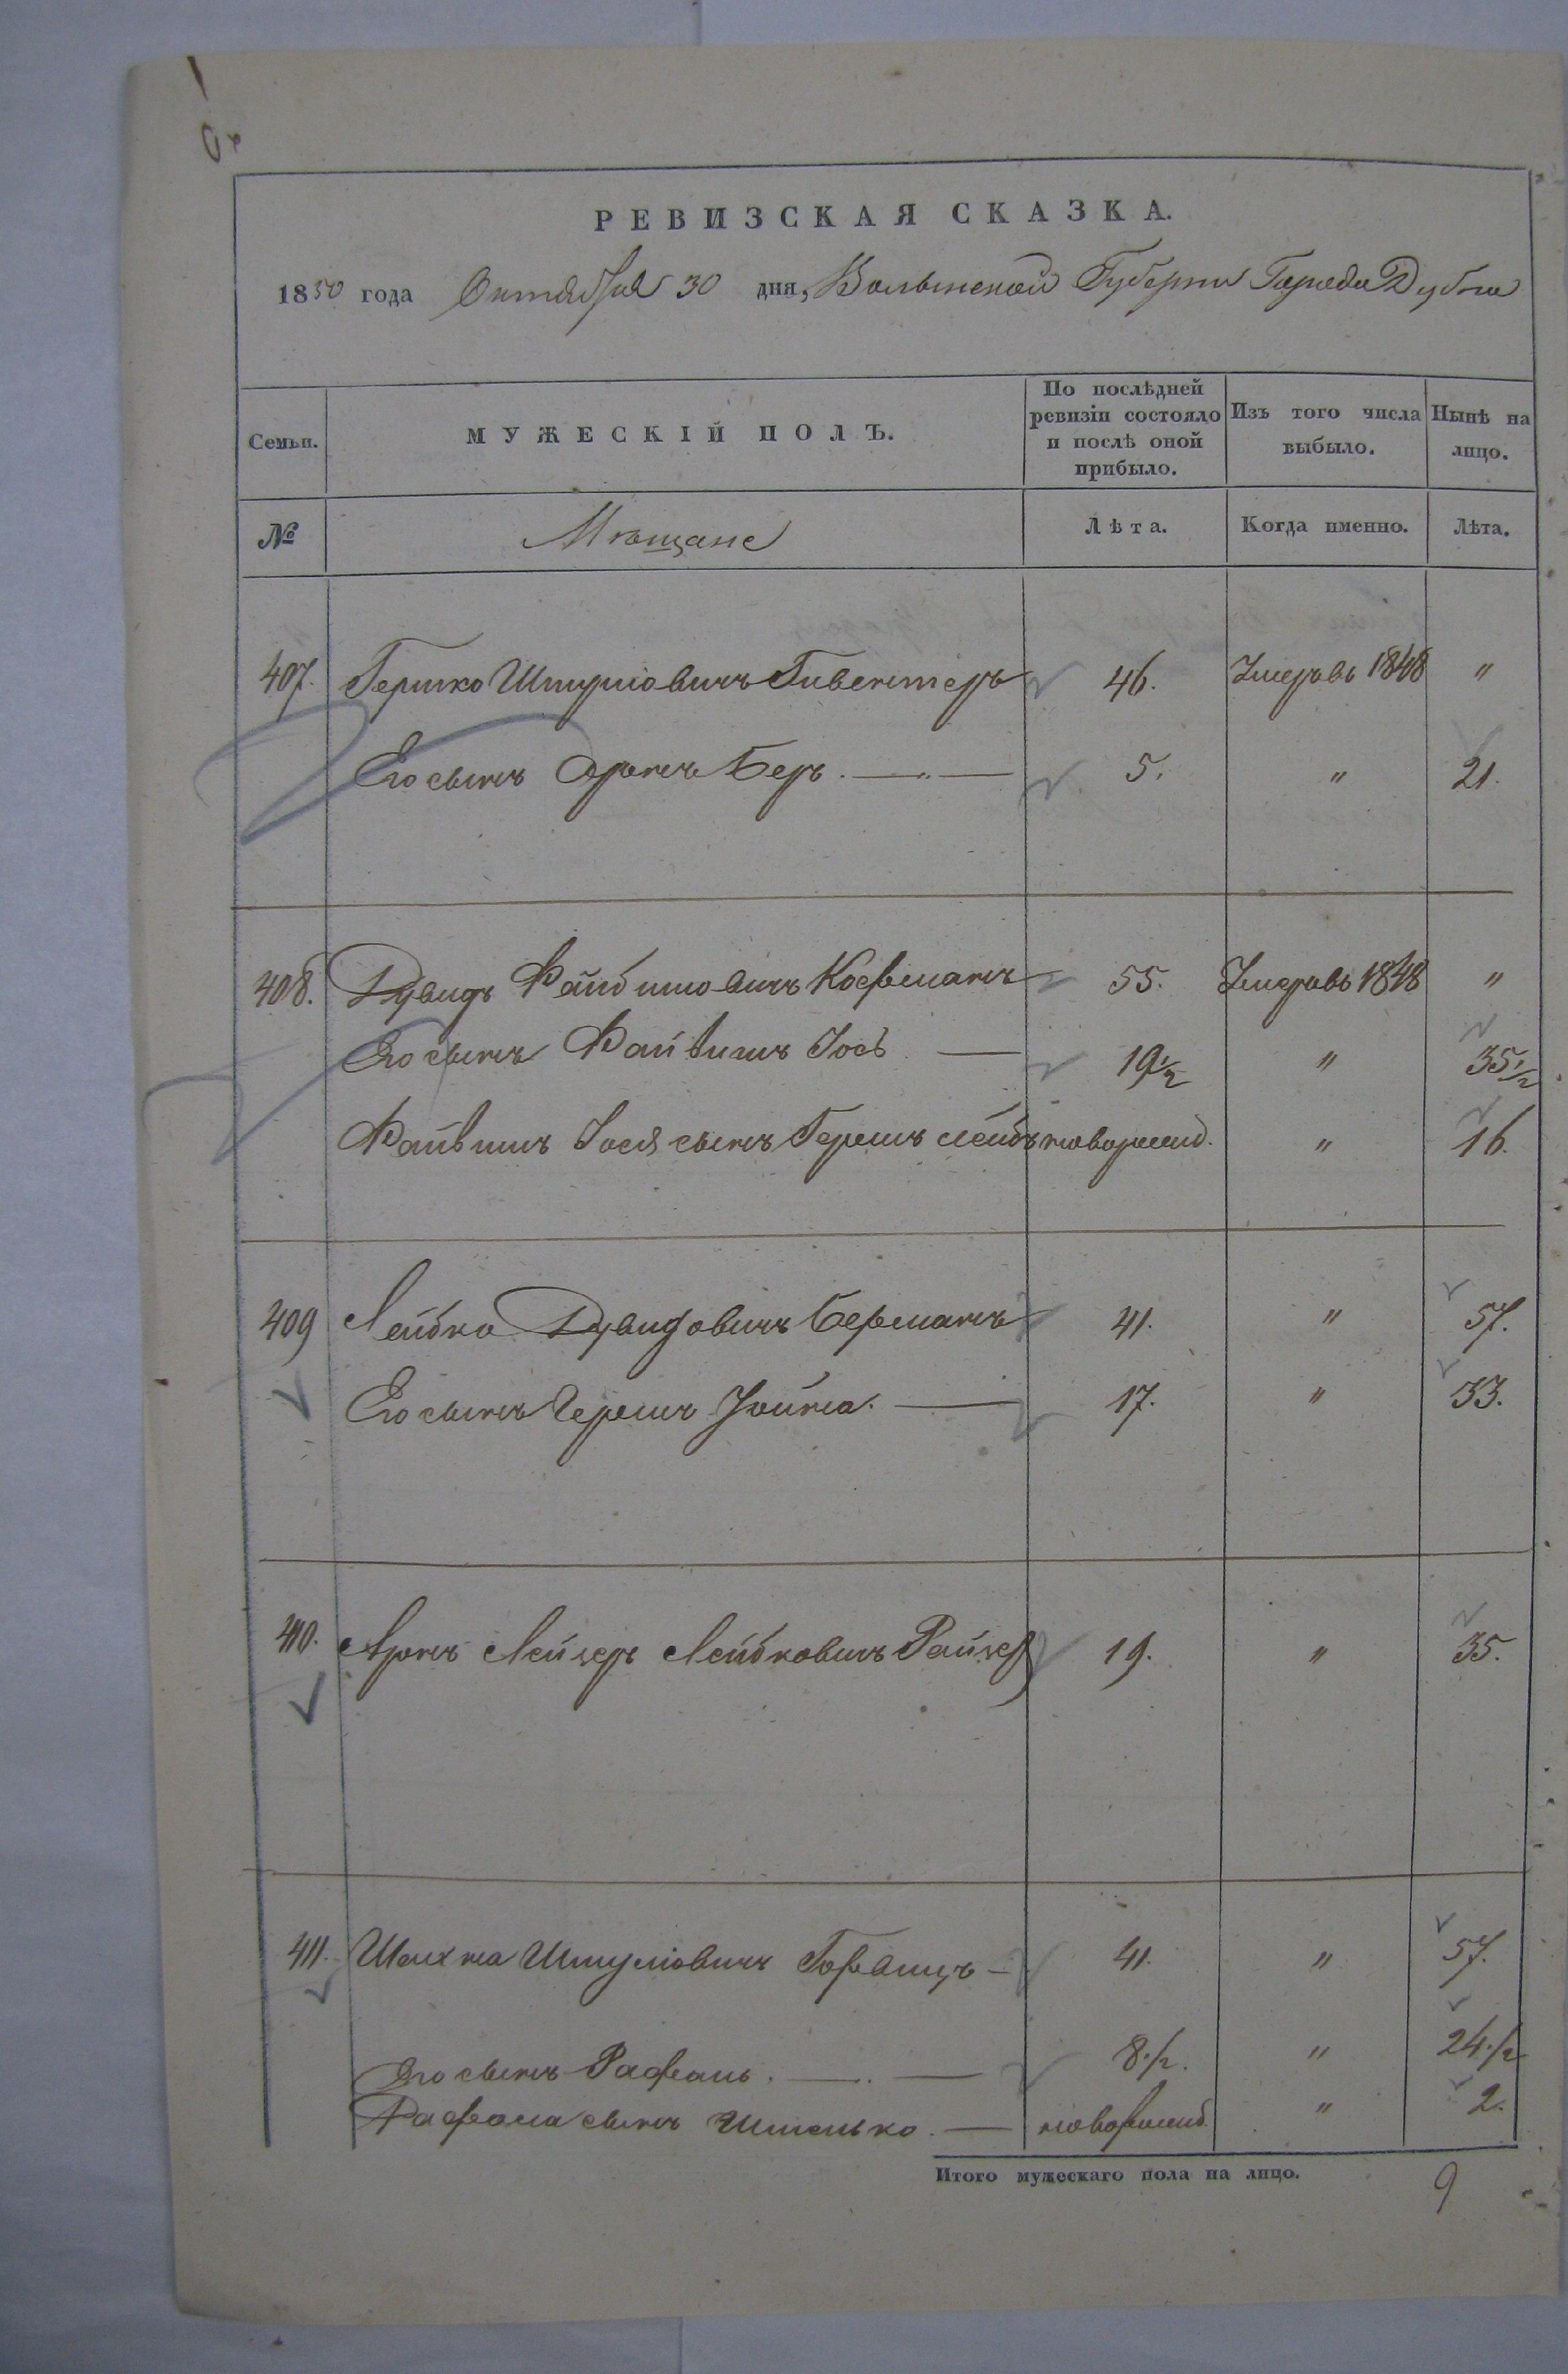 РЕВИЗСКАЯ СКАЗКА.
1850 года Октября 30 дня, Волынской Губернии Города Дубна
Семьи. МУЖЕСКІЙ ПОЛЪ. По послѣдней ревизіи состояло и послѣ оной прибыло. Изъ того числа выбыло. Нынѣ на лицо.
№ Мѣщане Лѣта. Когда именно. Лѣта.
407. Гершко Шмуліовичъ 46. Умеръ въ 1848 "
Его сынъ Беръ. — " — 5. " 21.
408. Дувидъ Файбишовичъ Кофманъ 55. Умеръ въ 1848 "
Его сынъ Файвишъ Іось — 19 1/2 " 35 1/2
Файвишъ Іося сынъ Гершъ Лейбъ новорожд. " 16.
409 Лейба Дувидовичъ Берманъ 41. " 57.
Его сынъ Гершъ — 17. " 33.
410. Аронъ Лейзеръ Лейбковичъ Райзер 19. " 35.
411. Шахна Шмуліовичъ Горвицъ — 41. " 57.
Его сынъ Рафаль. — . — 8 1/2. " 24 1/2
Рафала сынъ Шмелько. — новорожд. " 2.
Итого мужескаго пола на лицо. 9